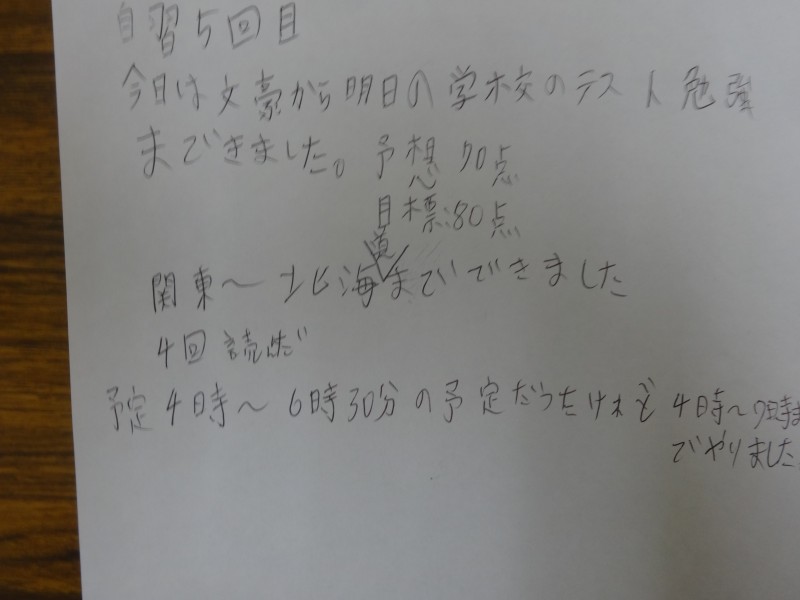 自習5回目
今日は文豪から明日の学校のテスト勉強
までできました。予想 70点
目標:80点
道
関東〜北海までできました
4回読んだ
予定4時〜6時30分の予定だったけれど4時〜7時ま
でやりました